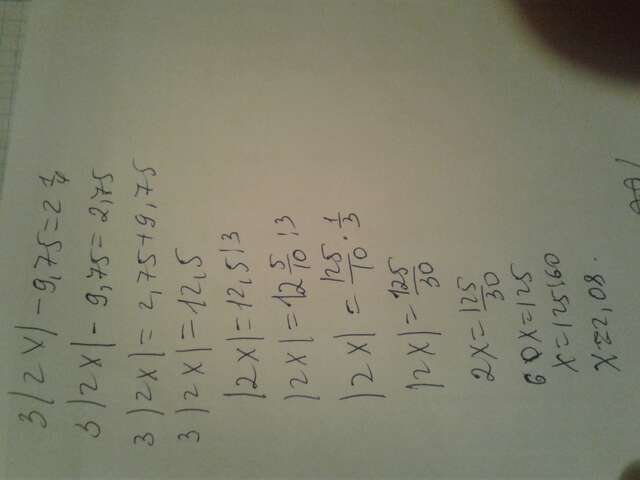 3|2x| - 9,75 = 2 1/4
3|2x| - 9,75 = 2,75
3|2x| = 2,75 + 9,75
3|2x| = 12,5
|2x| = 12,5 : 3
|2x| = 12 5/10 : 3
|2x| = 125/10 · 1/3
|2x| = 125/30
2x = 125/30
60x = 125
x = 125:60
x ≈ 2,08.